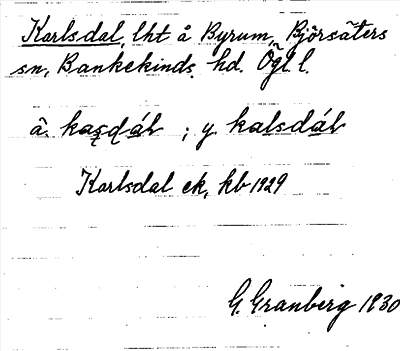 Karlsdal, lht å Byrum, Björsäters
sn, Bankekinds hd. Ögl. l.
ä. kaʂḍáḷ ; y. kalsdáḷ
Karlsdal ek, kb 1929
G. Granberg 1930